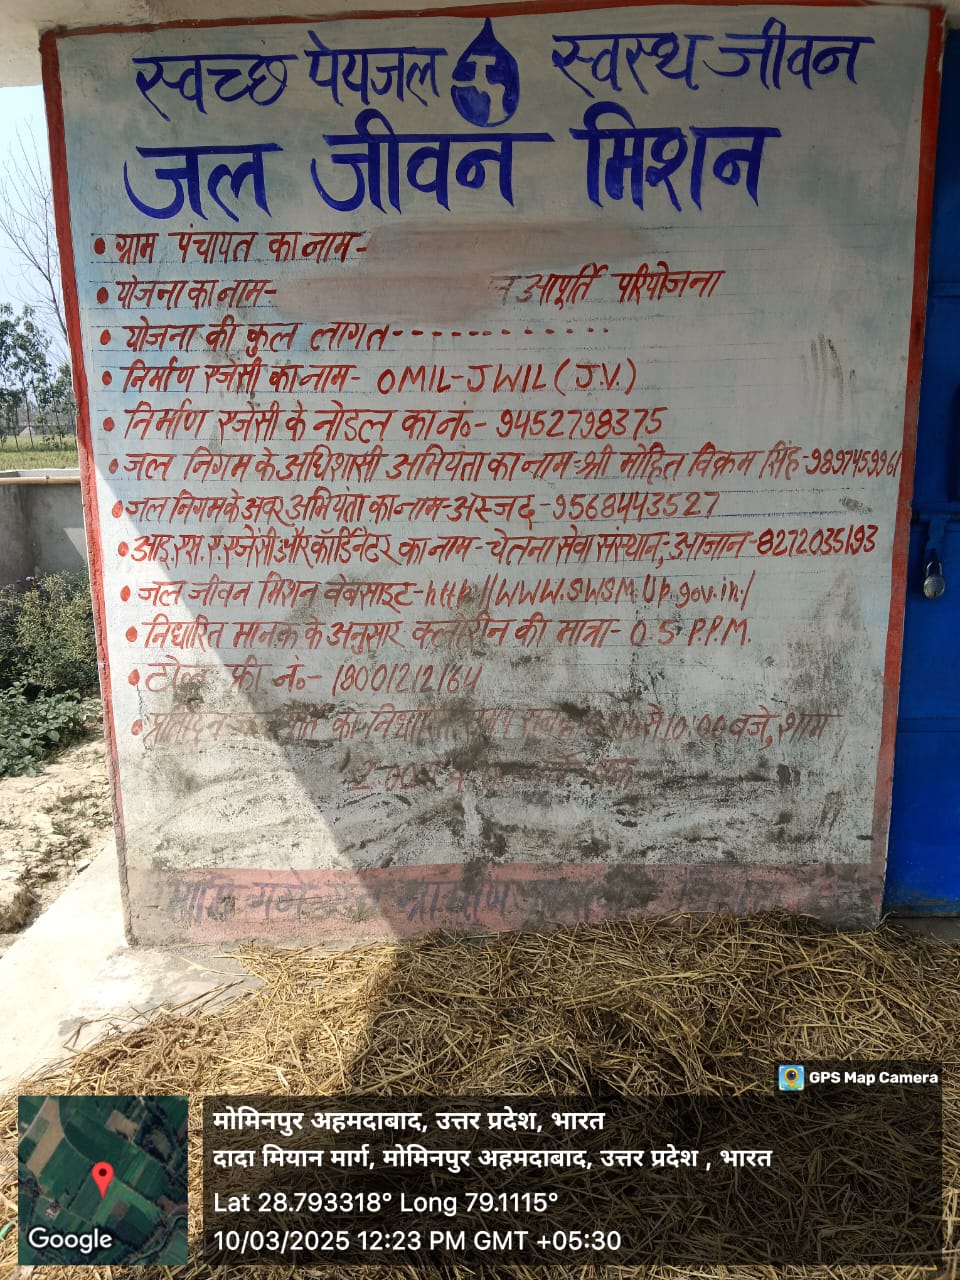 स्वच्छ पेयजल स्वस्थ जीवन
जल जीवन मिशन
• ग्राम पंचायत का नाम-
• योजना का नाम- आपूर्ति परियोजना
• योजना की कुल लागत-------------
• निर्माण एजेंसी का नाम- OMIL-JWIL (J.V.)
• निर्माण एजेंसी के नोडल का नं०- 9452798375
• जल निगम के अधिशासी अभियंता का नाम-श्री मोहित विक्रम सिंह-9897459961
• जल निगम के अवर अभियंता का नाम-अस्जद-9568443527
• आई.एस.ए. एजेंसी और कॉर्डिनेटर का नाम- चेतना सेवा संस्थान, आजान-8272035193
• जल जीवन मिशन वेबसाइट-http://WWW.SWSM.UP.gov.in/
• निर्धारित मानक के अनुसार क्लोरीन की मात्रा- 0.5 P.P.M.
• टोल फ्री नं०- 18001212164
• का 10.00 बजे, शाम
तक
ग्रामीण
GPS Map Camera
मोमिनपुर अहमदाबाद, उत्तर प्रदेश, भारत
दादा मियान मार्ग, मोमिनपुर अहमदाबाद, उत्तर प्रदेश , भारत
Lat 28.793318° Long 79.1115°
10/03/2025 12:23 PM GMT +05:30
Google